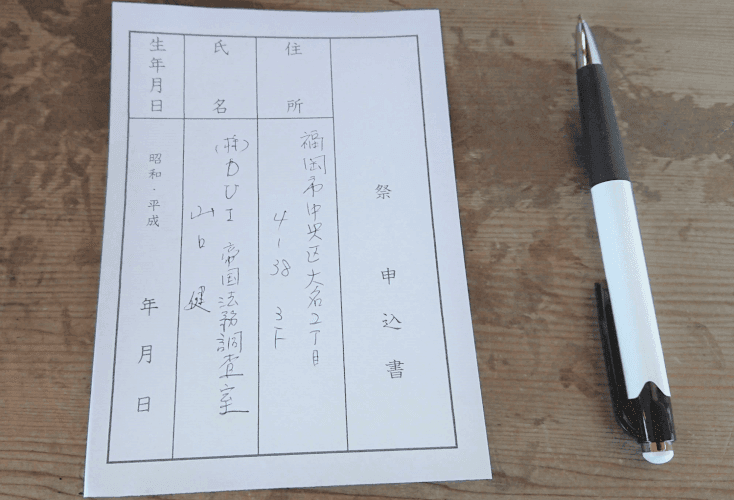 祭 申込書
住所
福岡市中央区大名2丁目
4-38 3F
氏名
(株)DUI 帝国法務調査室
山口 健
生年月日
昭和・平成 年 月 日